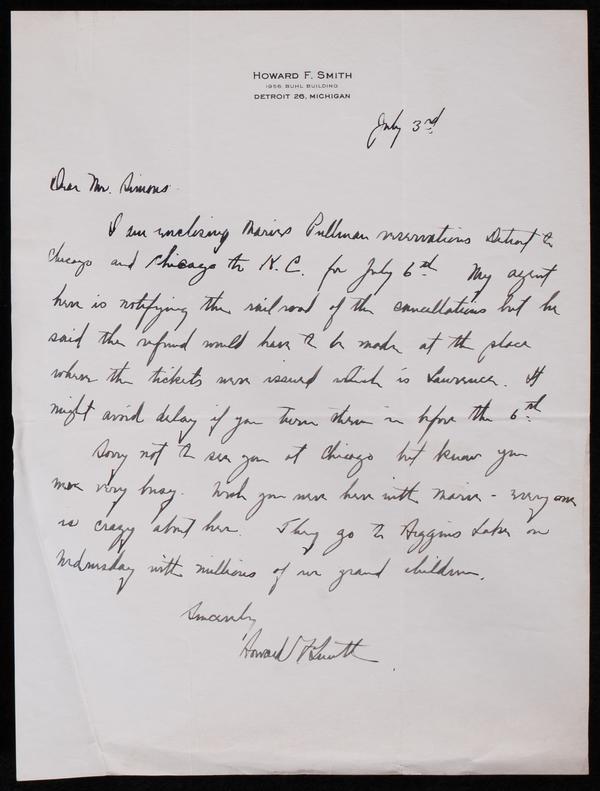 HOWARD F. SMITH
1956 BUHL BUILDING
DETROIT 26, MICHIGAN
July 3rd
Dear Mr. Simons
I am enclosing Maries Pullman reservations Detroit to
Chicago and Chicago to K.C. for July 6th. My agent
here is notifying the railroad of the cancellations but he
said the refund would have to be made at the place
where the tickets were issued which is Lawrence. It
might avoid delay if you turn them in before the 6th.
Sorry not to see you at Chicago but know you
were very busy. Wish you were here with Marie - every one
is crazy about her. They go to Higgins Lake on
Wednesday with millions of our grand children.
Sincerely,
Howard F Smith